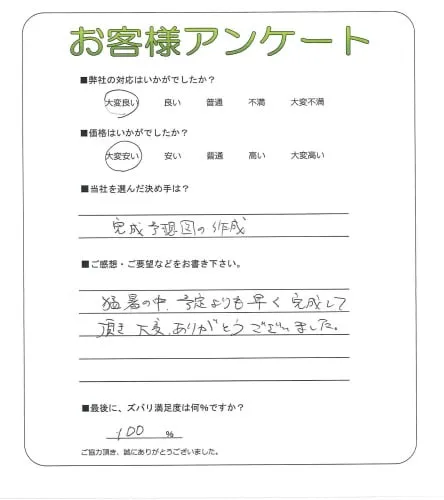 お客様アンケート
■弊社の対応はいかがでしたか?
大変良い 良い 普通 不満 大変不満
■価格はいかがでしたか?
大変安い 安い 普通 高い 大変高い
■当社を選んだ決め手は?
完成予想図の作成
■ご感想・ご要望などをお書き下さい。
猛暑の中、予定よりも早く完成して
頂き大変、ありがとうございました。
■最後に、ズバリ満足度は何%ですか?
100 %
ご協力頂き、誠にありがとうございました。